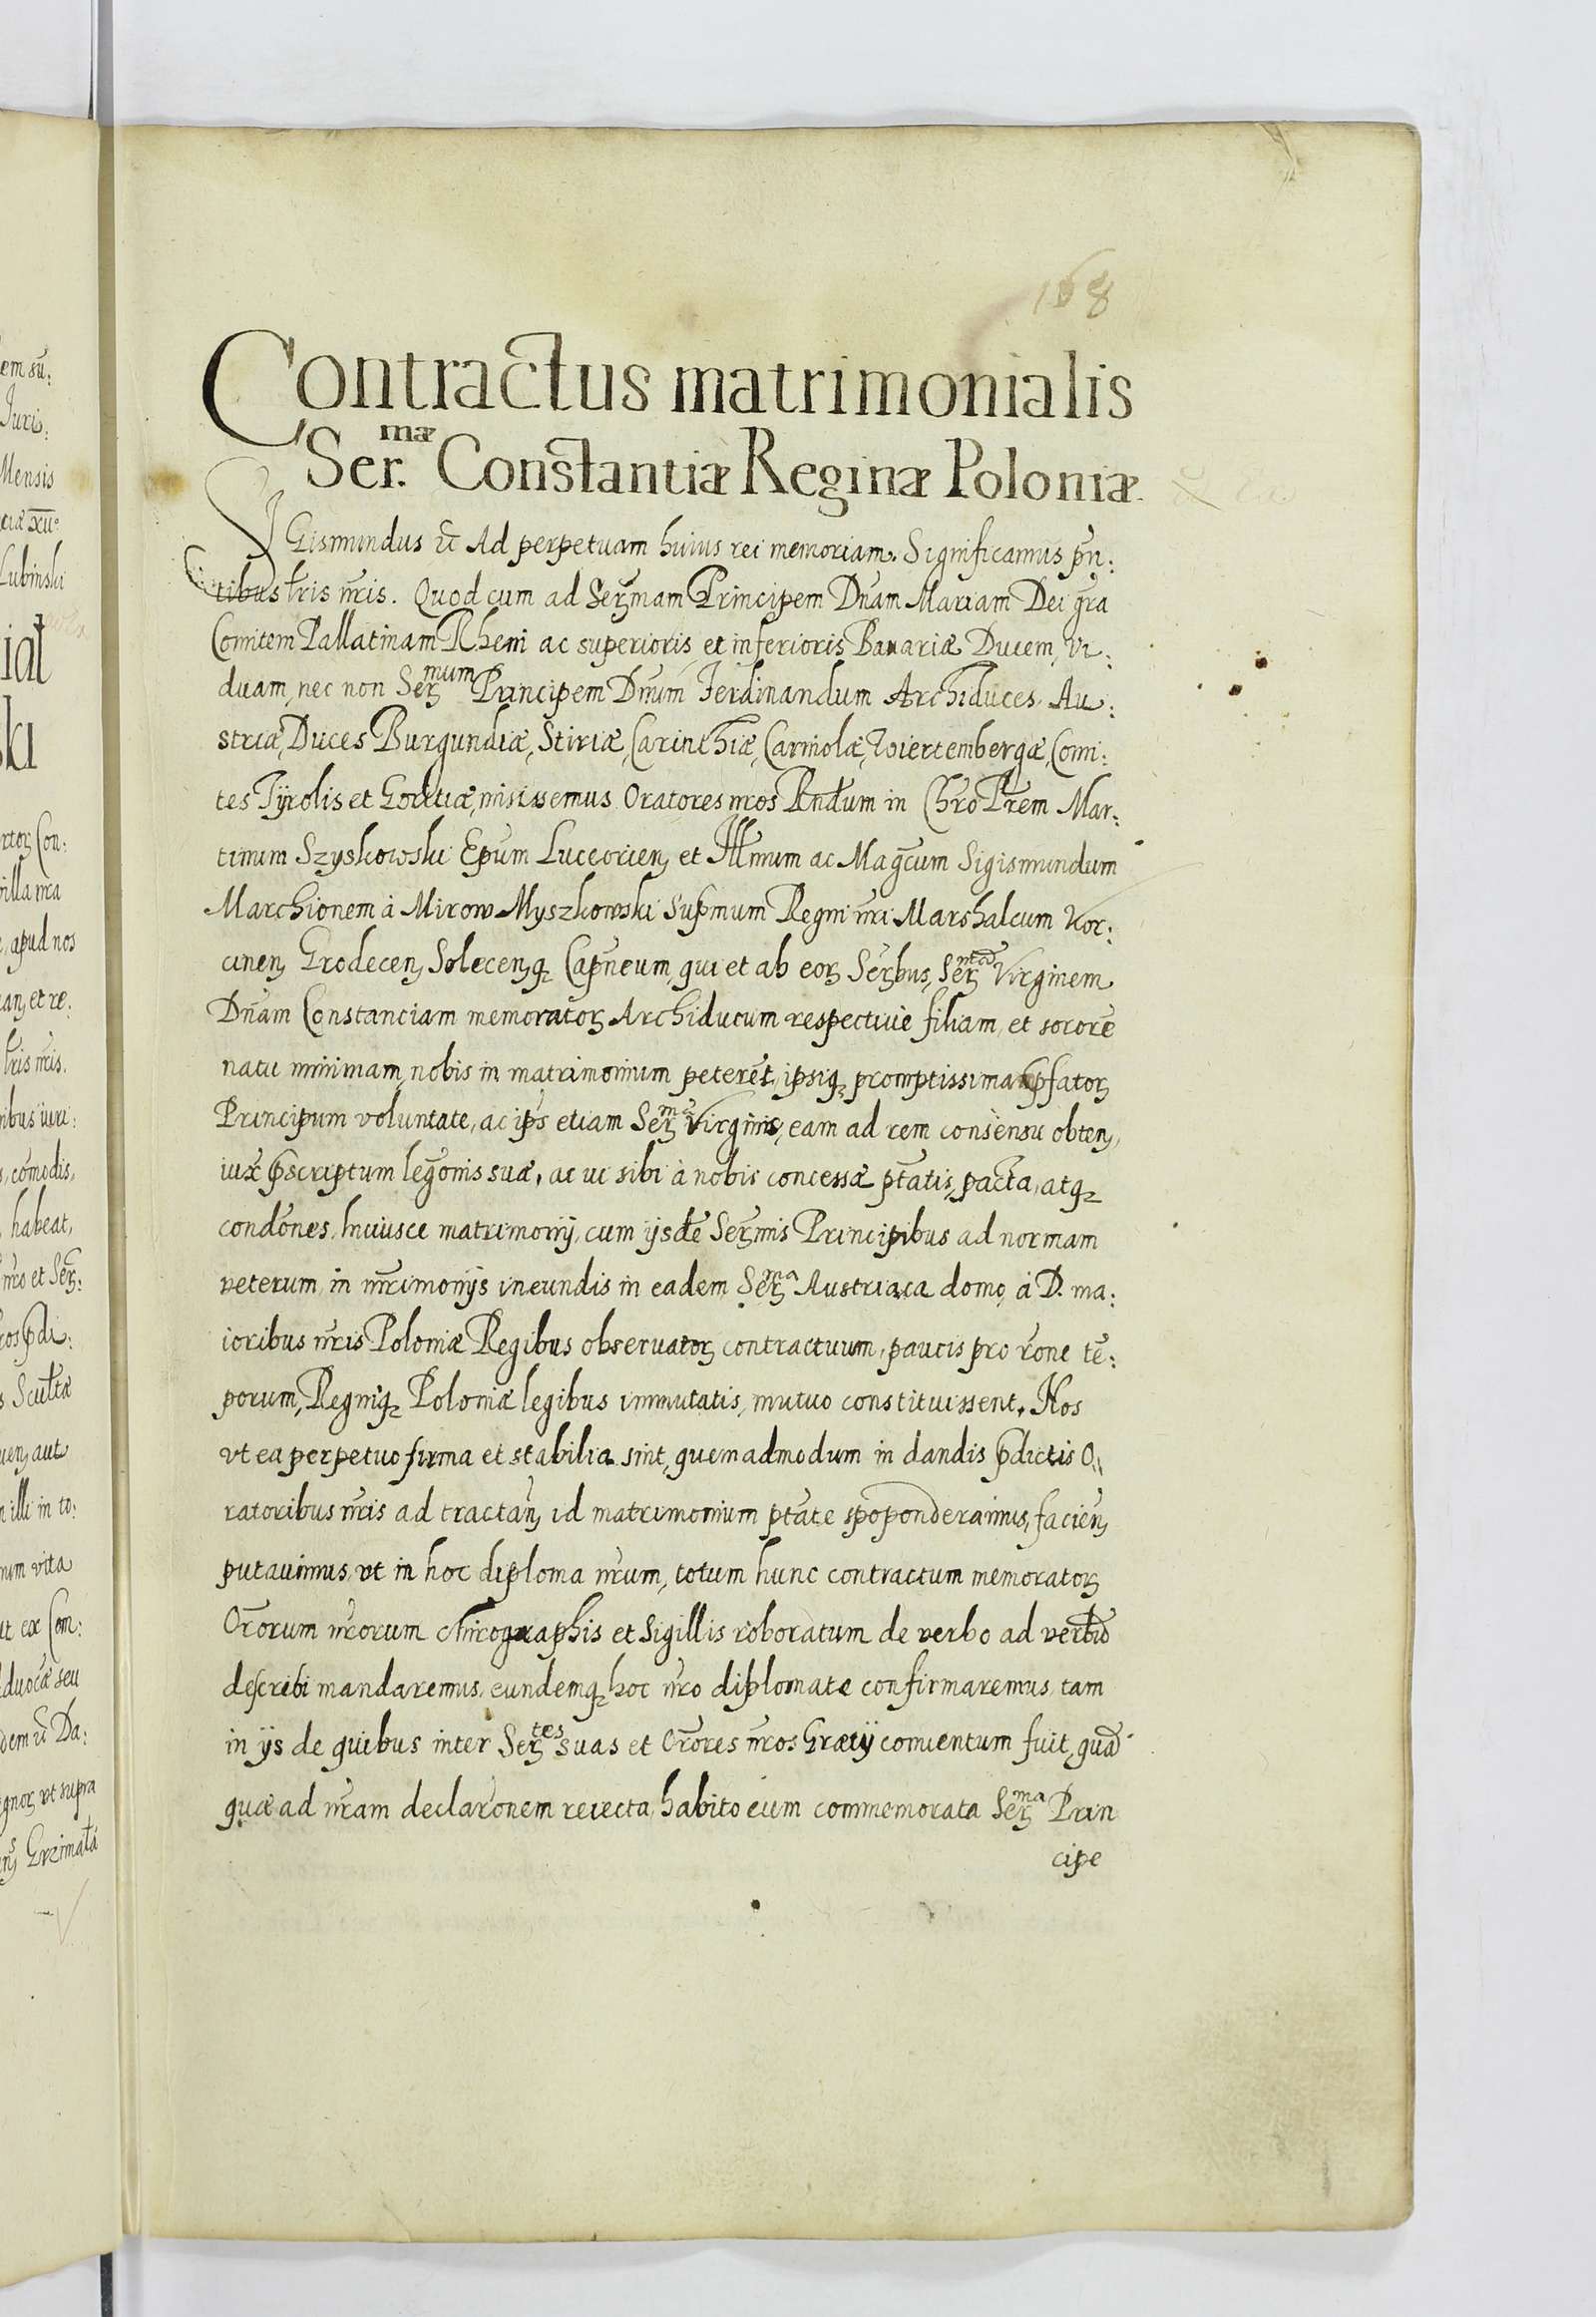 em sū:
Juri:
Mensis
ciæ xūº
Lubinski
ial
ki
rtoꝝ Con:
villa nr̃a
apud nos
an et re:
lr̃is nr̃is.
nibus iuri:
comodis,
habeat,
nr̃o et Ser:
ros p̃di:
Scultæ
uen, aut
illi in to:
num vita
ut ex Com:
duocæ seu
dem ec̃ Da:
gnoꝝ vt supra
Grzimałá
168
Contractus matrimonialis
Ser.mæ Constantiæ Reginæ Poloniæ
SIGismundus ec̃ Ad perpetuam huius rei memoriam. Significamus pñ:
tibus lr̃is nr̃is. Quod cum ad Serm̃am Principem Dñam Mariam Dei gr̃a
Comitem Pallatinam Rheni ac superioris et inferioris Bauariæ Ducem, vi:
duam, nec non Ser.mum Principem Dñum Ferdinandum Archiduces Au:
striæ, Duces Burgundiæ, Stiriæ, Carinthiæ, Carniolæ, Wiertembergæ, Comi:
tes Tÿrolis et Goritiæ, misissemus Oratores nr̃os Rñdum in Chr̃o Pr̃em Mar:
tinum Szyskowski Ep̃um Luceorien, et Illm̃um ac Magc̃um Sigismundum
Marchionem à Mirow Myszkowski Sup̃mum Regni nr̃i Marshalcum Kor:
cinen, Grodecen, Solecenq̃ Cap̃neum, qui et ab eoꝝ Serbus, Ser.mã Virginem
Dñam Constanciam memoratoꝝ Archiducum respectiuè filiam, et sororẽ
natu minimam, nobis in matrimonium peterẽt, ipsiq̃ promptissima p̃fatoꝝ
Principum voluntate, ac ip̃s etiam Ser.mæ Virginis, eam ad rem consensu obten,
iux̃ p̃scriptum leg̃onis suæ, ac vi sibi à nobis concessæ p̃tatis, pacta, atq̃
condõnes, huiusce matrimonij, cum ijsdẽ Serm̃is Principibus ad normam
veterum, in mr̃imonijs ineundis in eadem Ser.ma Austriaca domo, à D. ma:
ioribus nr̃is Poloniæ Regibus obseruatoꝝ contractuum, paucis pro rõne tẽ:
porum, Regniq̃ Poloniæ legibus immutatis, mutuo constituissent. Nos
vt ea perpetuo firma et stabilia sint, quemadmodum in dandis p̃dictis O:
ratoribus nr̃is ad tractan, id matrimonium p̃tate spoponderamus, facien,
putauimus, vt in hoc diploma nr̃um, totum hunc contractum memoratoꝝ
Or̃orum nr̃orum chirographis et sigillis roboratum de verbo ad verbũ
describi mandaremus, eundemq̃ hoc nr̃o diplomate confirmaremus, tam
in ijs de quibus inter Ser.tes suas et Or̃ores nr̃os Grætij conuentum fuit, quã
quæ ad nr̃am declarõnem reiecta, habito cum commemorata Ser.ma Prin
cipe